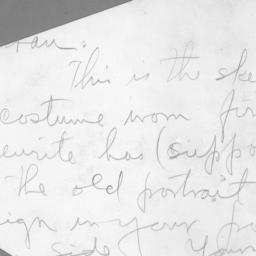 This is the ske
costume worn fir
has (suppo
the old portrait
ign in your po
side Your